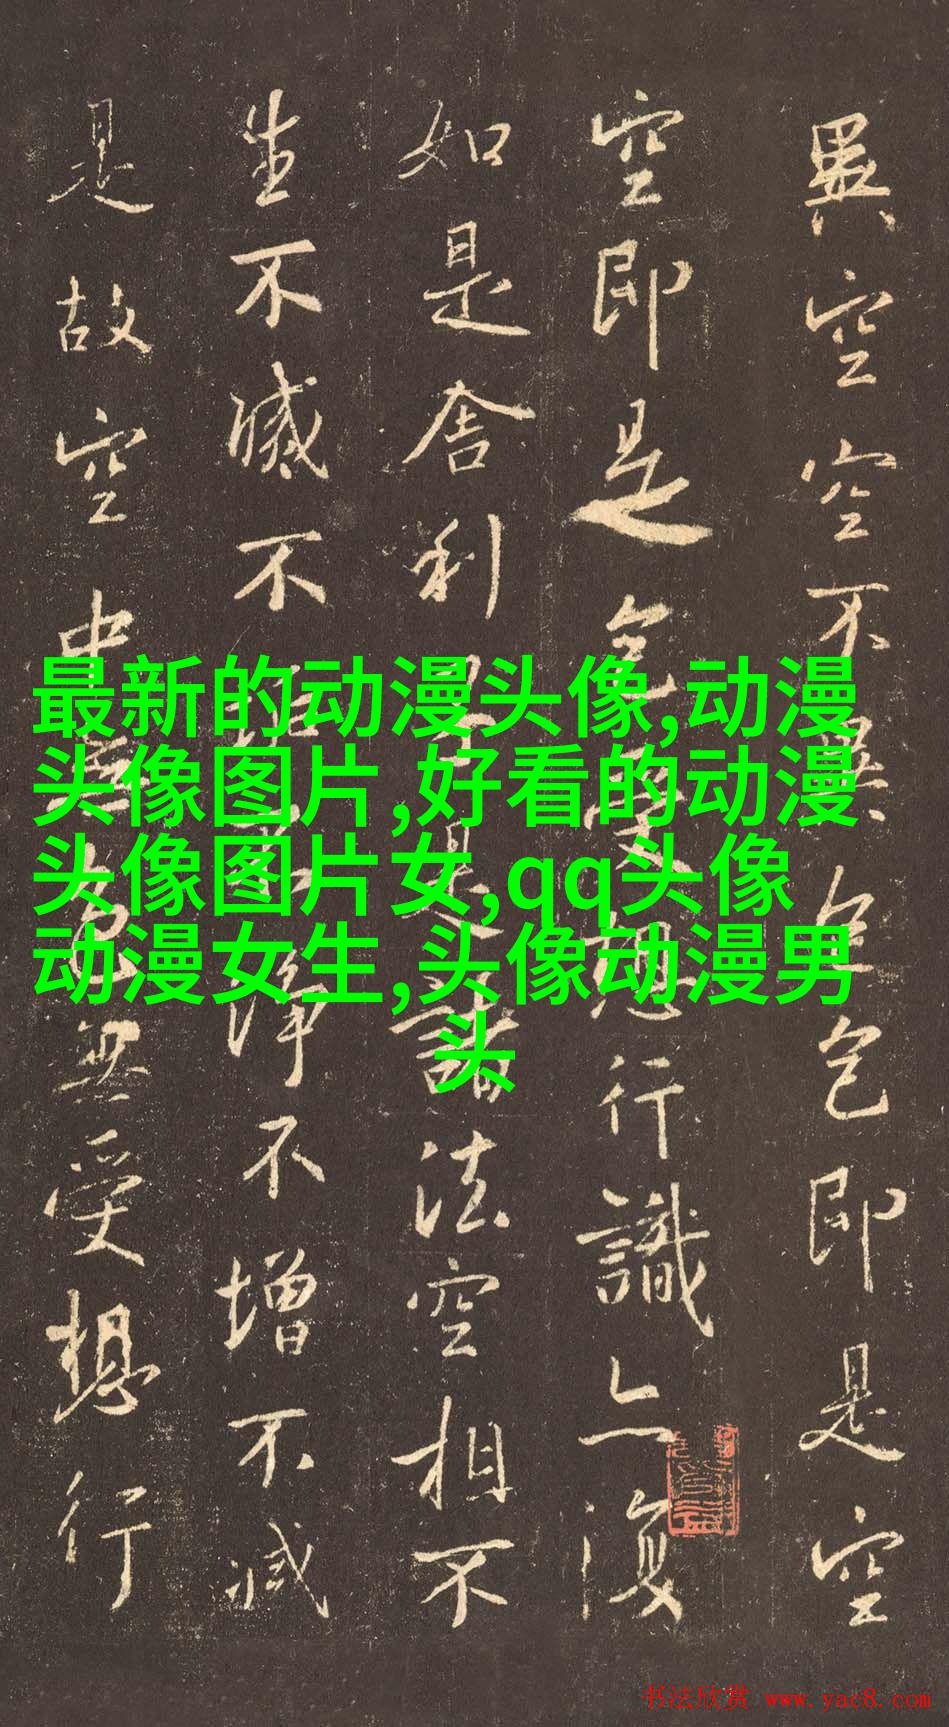 異空空不異色色即是空
空即是色受想行識亦復
如是舍利子是諸法空相不
生不滅不垢不淨不增不減
是故空中無色無受想行
最新的动漫头像,动漫
头像图片,好看的动漫
头像图片女,qq头像
动漫女生,头像动漫男
头
书法欣赏 www.yac8.com